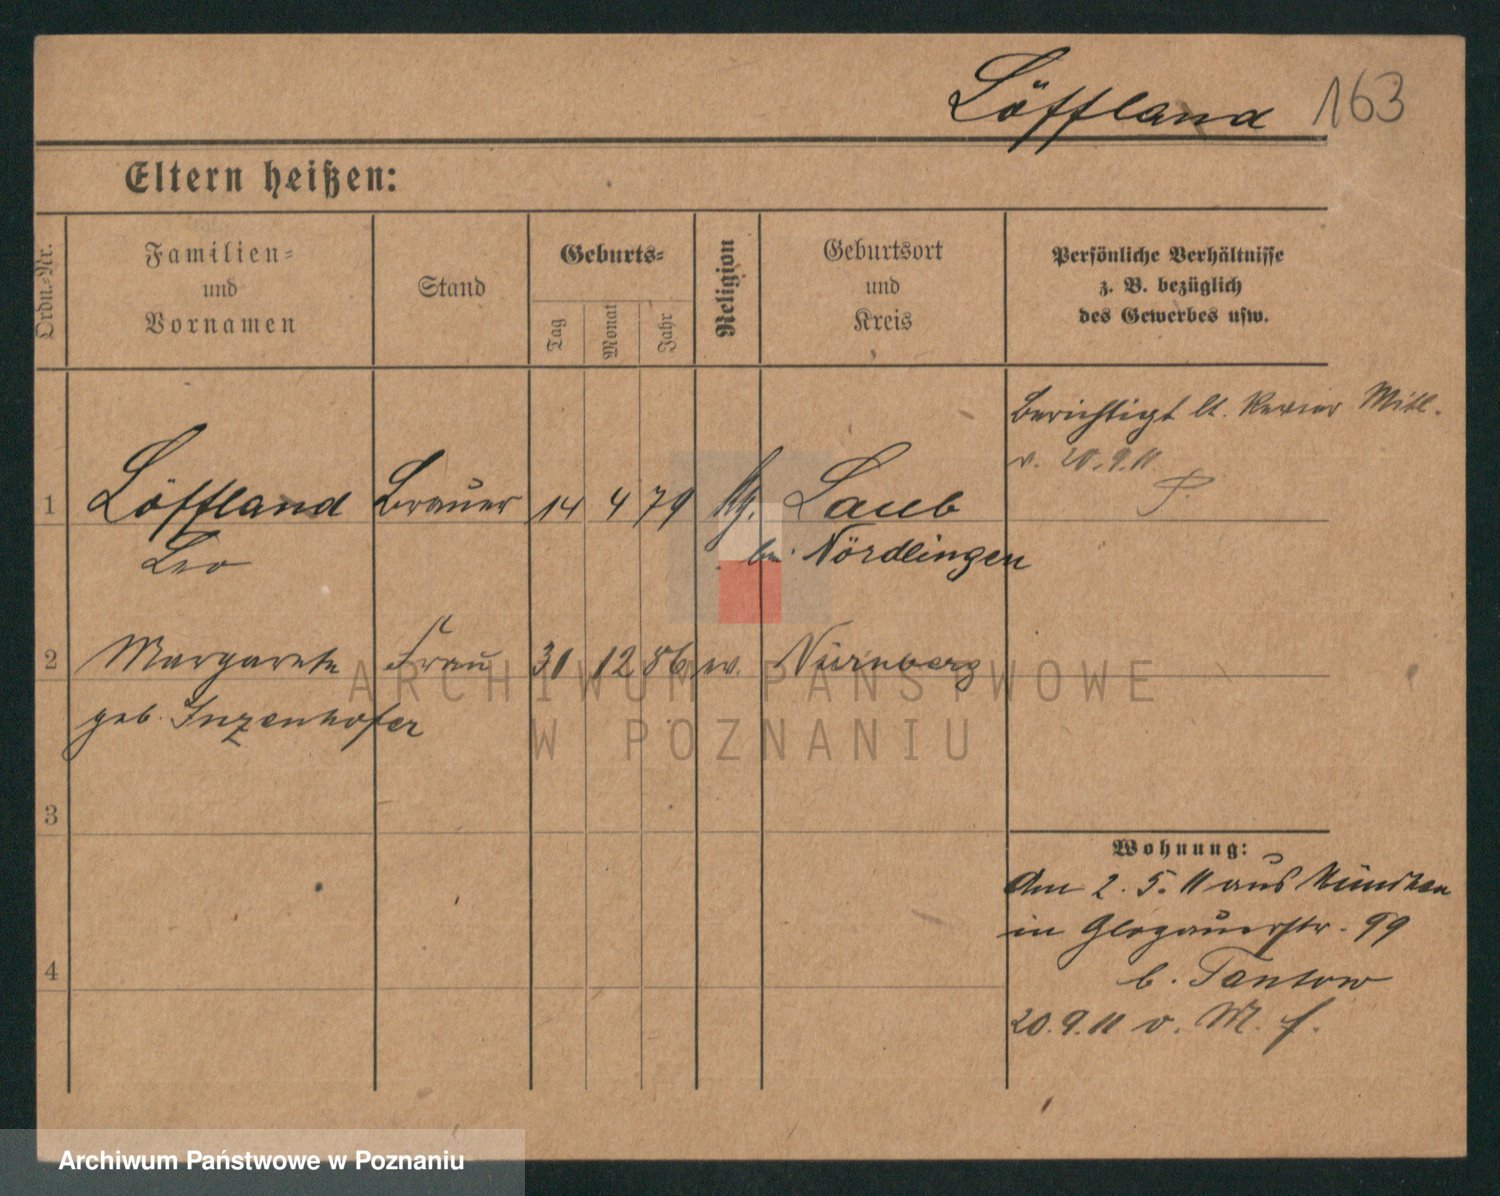 Löffland 163
Eltern heißen:
Ordn.-Nr.
Familien-
und
Vornamen
Stand
Geburts-
Tag
Monat
Jahr
Religion
Geburtsort
und
Kreis
Persönliche Verhältnisse
z. B. bezüglich
des Gewerbes usw.
Berichtigt lt. Revier Mitl.
v. 20.9.11
1 Löffland Brauer 14 4 79 Kg. Laub
Leo bei Nördlingen
2 Margarete Frau 31 12 86 ev. Nürnberg
geb. Inzenhofer
3
4
Wohnung:
Am 2. 5. 11 aus München
in Glogauerstr. 99
b. Tantow
20.9.11 v. M. f.
ARCHIWUM PAŃSTWOWE
W POZNANIU
Archiwum Państwowe w Poznaniu